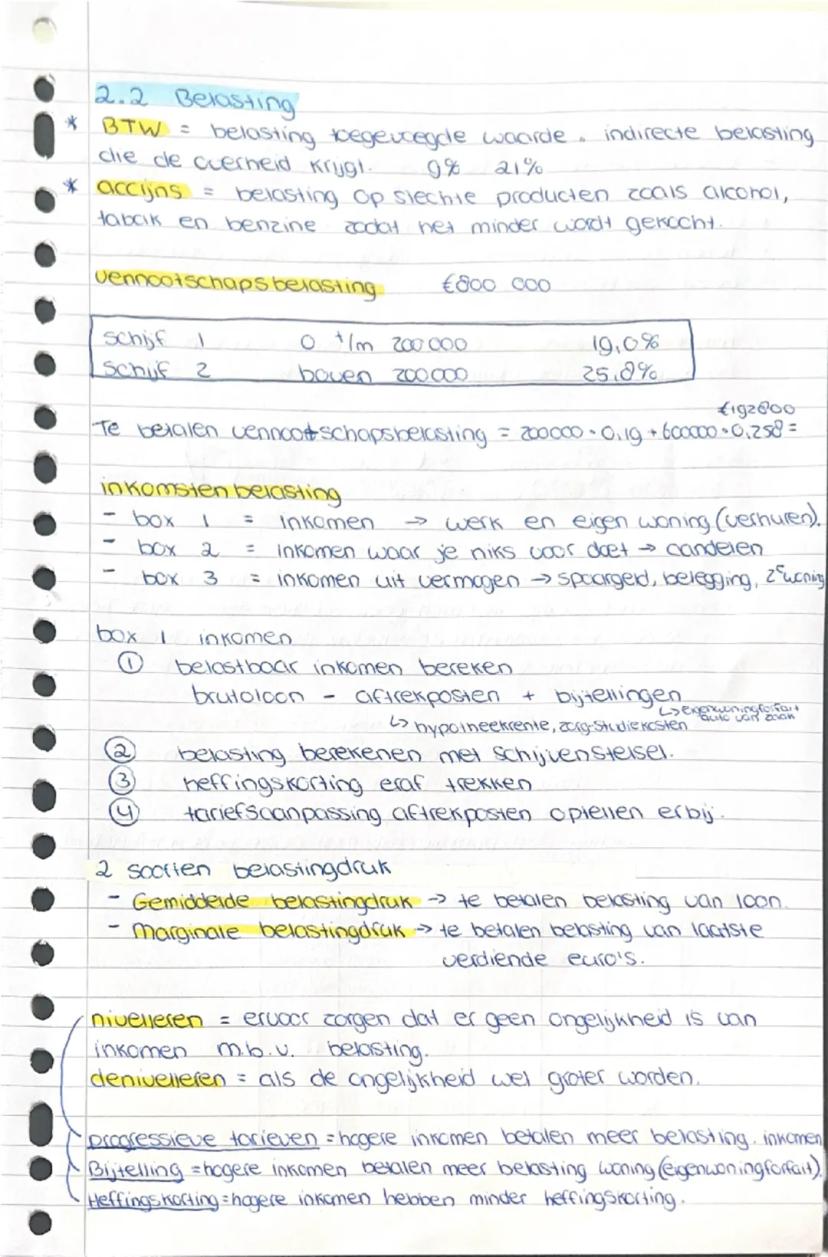 2.2 Belasting
* BTW = belasting toegevoegde waarde. indirecte belasting
die de overheid krijgt. 9% 21%
* accijns = belasting op slechte producten zoals alcohol,
tabak en benzine zodat het minder wordt gekocht.
vennootschapsbelasting €800 000
schijf 1 0 t/m 200.000 19,0%
schijf 2 boven 200.000 25,8%
€192800
Te betalen vennootschapsbelasting = 200000 · 0,19 + 600000 · 0,258 =
inkomstenbelasting
- box 1 = inkomen → werk en eigen woning (verhuren).
- box 2 = inkomen waar je niks voor doet → aandelen
- box 3 = inkomen uit vermogen → spaargeld, belegging, 2e woning
box 1 inkomen
① belastbaar inkomen bereken
brutoloon - aftrekposten + bijtellingen
↳ eigenwoningforfait
auto van zaak
↳ hypotheekrente, zorg-studiekosten
② belasting berekenen met schijvenstelsel.
③ heffingskorting eraf trekken
④ tariefsaanpassing aftrekposten optellen erbij.
2 soorten belastingdruk
- Gemiddelde belastingdruk → te betalen belasting van loon.
- Marginale belastingdruk → te betalen belasting van laatste
verdiende euro's.
nivelleren = ervoor zorgen dat er geen ongelijkheid is van
inkomen m.b.v. belasting.
denivelleren = als de ongelijkheid wel groter worden.
progressieve tarieven = hogere inkomen betalen meer belasting. inkomen
Bijtelling = hogere inkomen betalen meer belasting woning (eigenwoningforfait).
Heffingskorting = hogere inkomen hebben minder heffingskorting.